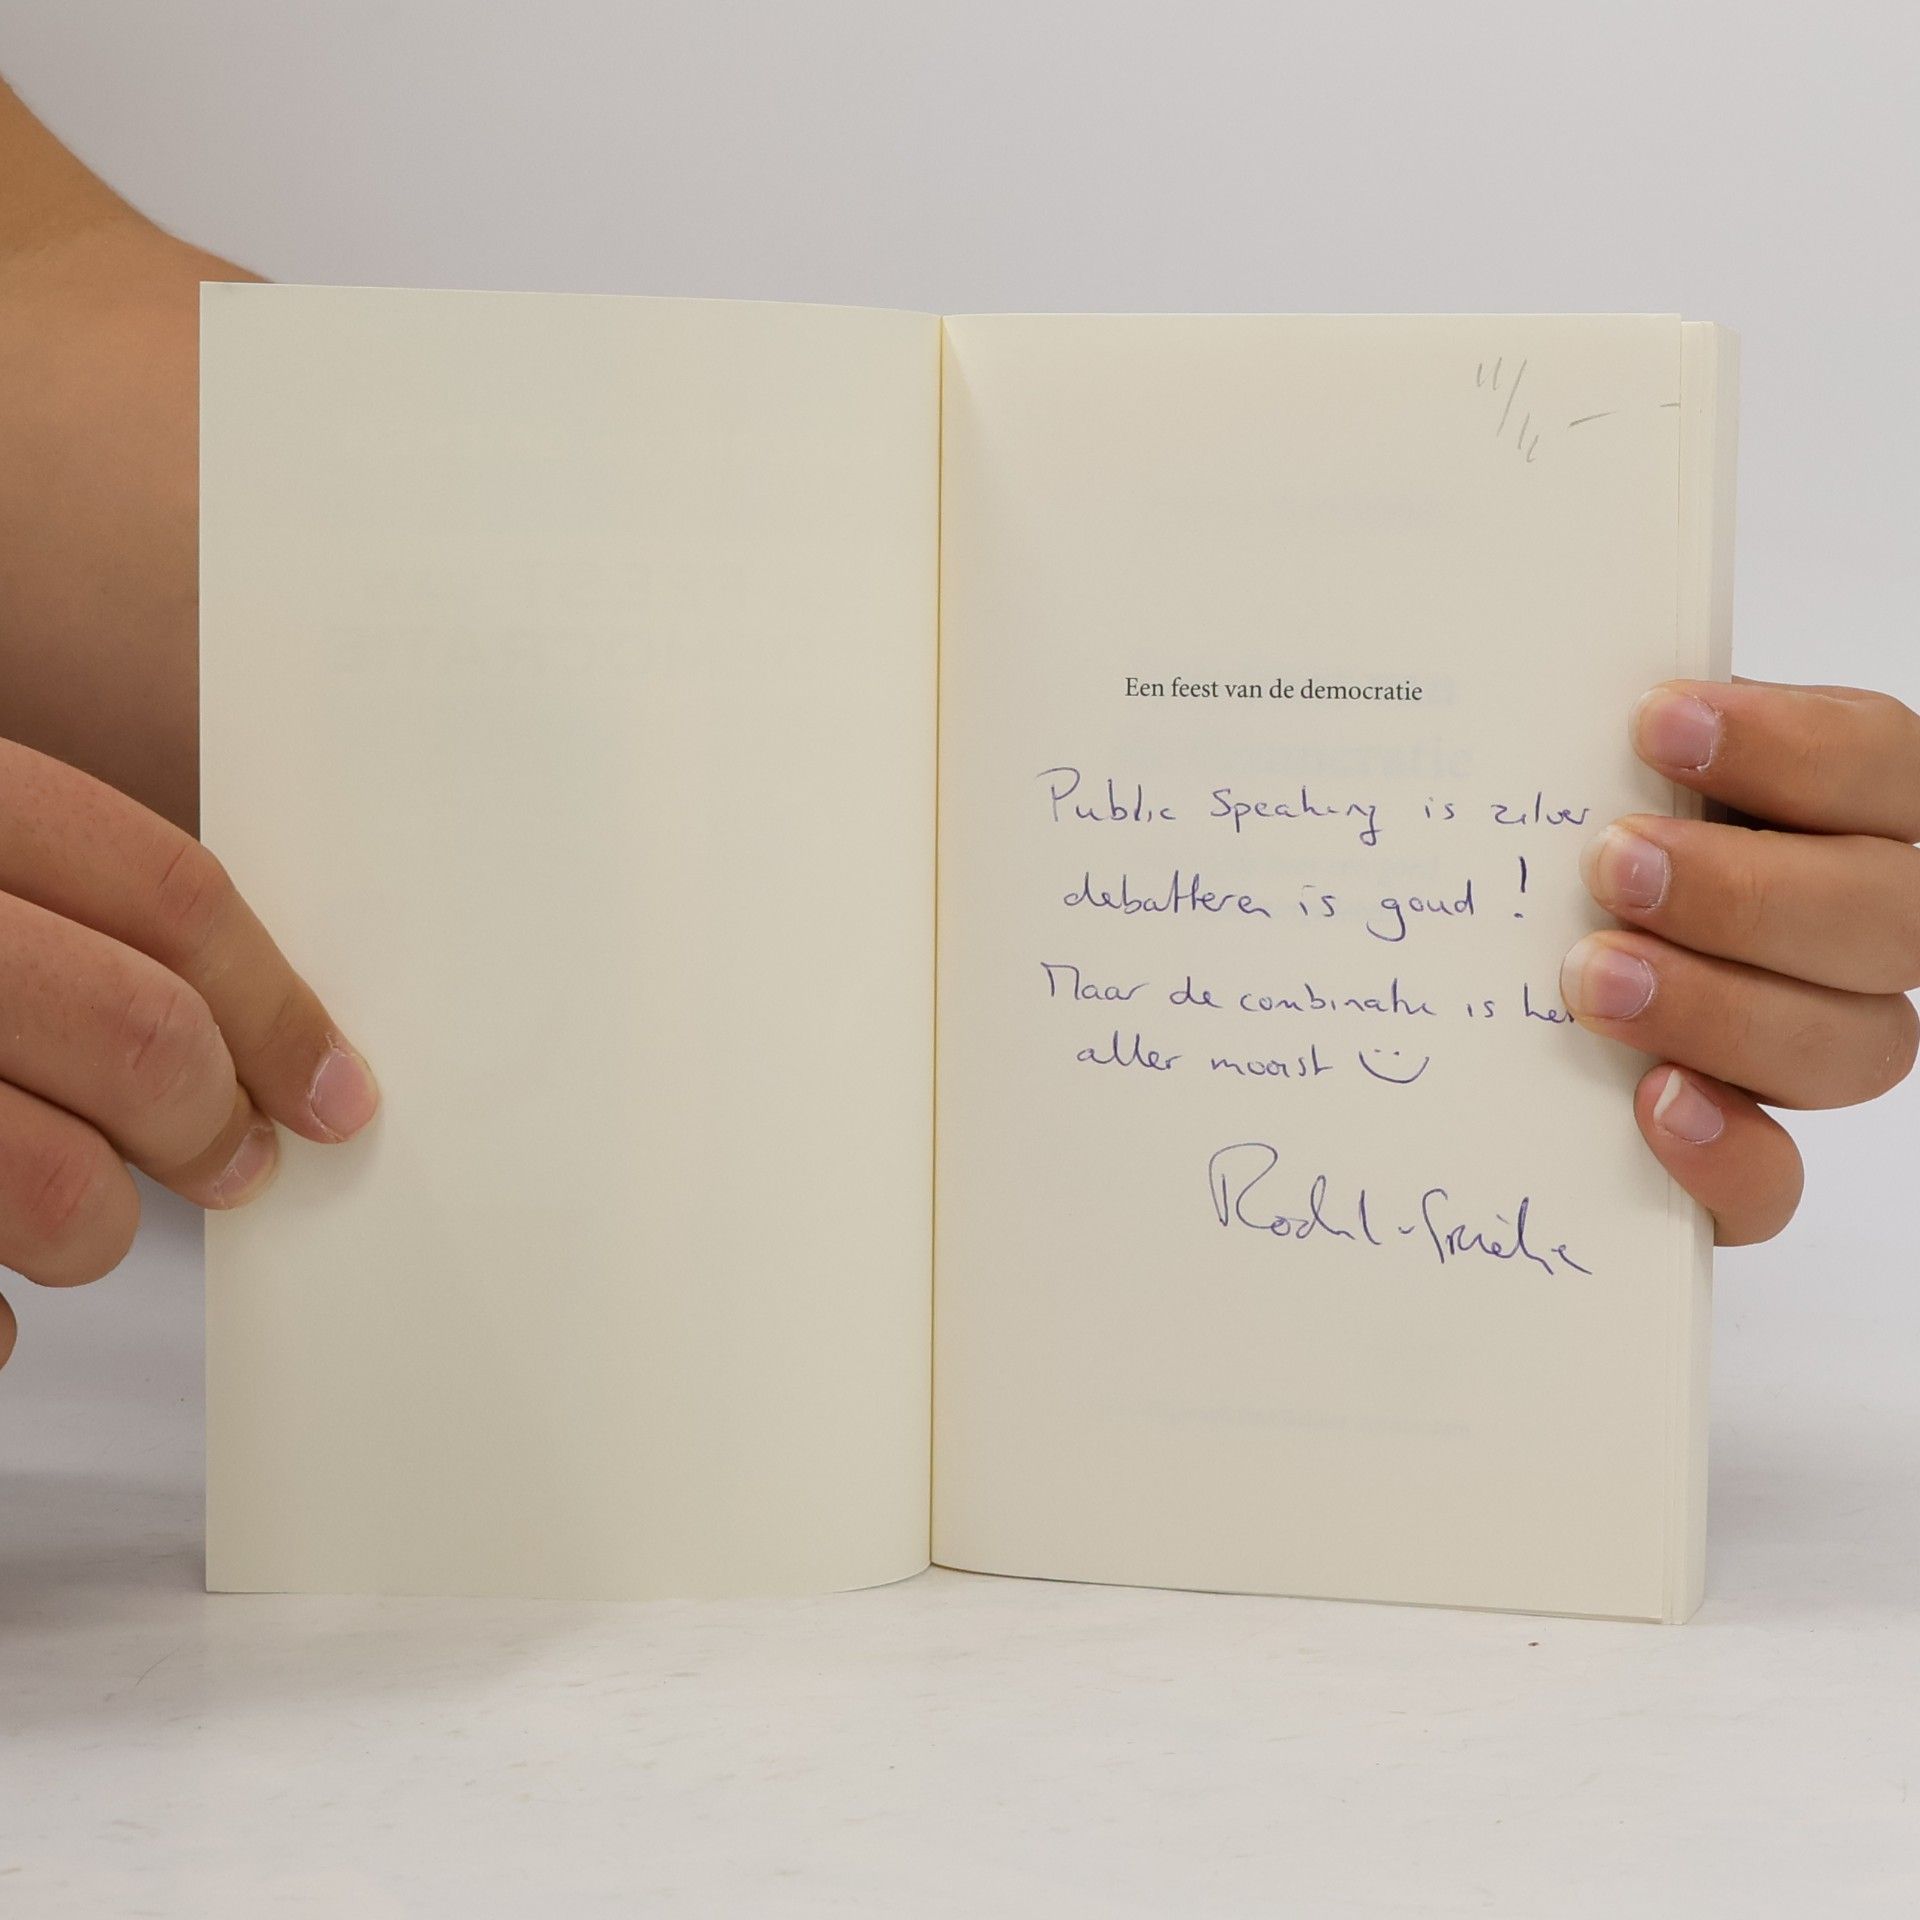 Een feest van de democratie
Public Speaking is zilver
debatteren is goud!
Maar de combinatie is het
aller mooist